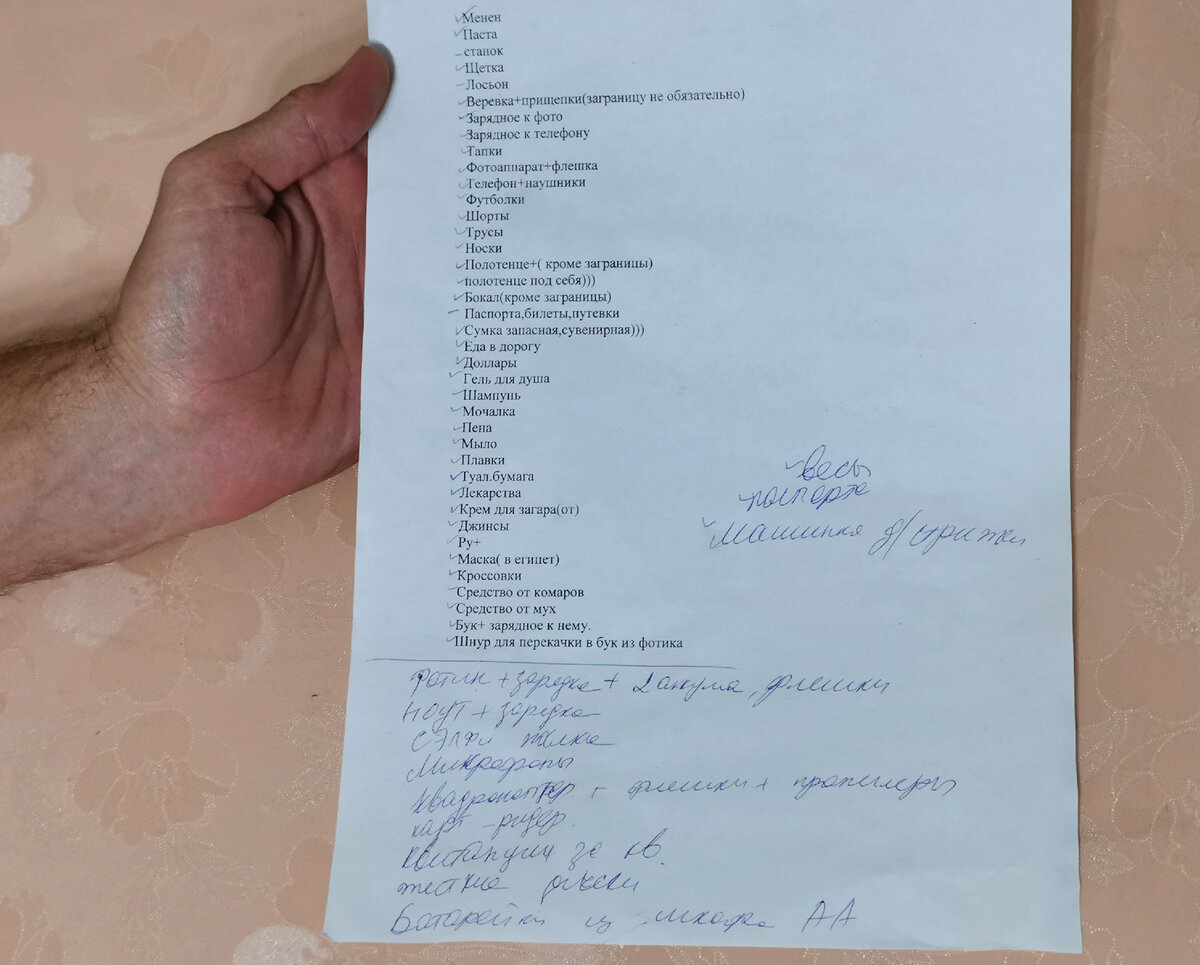 Менен
Паста
станок
Щетка
Лосьон
Веревка+прищепки(заграницу не обязательно)
Зарядное к фото
Зарядное к телефону
Тапки
Фотоаппарат+флешка
Телефон+наушники
Футболки
Шорты
Трусы
Носки
Полотенце+( кроме заграницы)
полотенце под себя)))
Бокал(кроме заграницы)
Паспорта,билеты,путевки
Сумка запасная,сувенирная)))
Еда в дорогу
Доллары
Гель для душа
Шампунь
Мочалка
Пена
Мыло
Плавки
Туал.бумага
Лекарства
Крем для загара(от)
Джинсы
Ру+
Маска( в египет)
Кроссовки
Средство от комаров
Средство от мух
Бук+ зарядное к нему.
Шнур для перекачки в бук из фотика
весы
паспорта
Машинка д/стрижки
Фотик + зарядка + 2 аккума, флешки
Ноут + зарядка
Сэлфи палка
Микрофоны
Квадрокоптер + флешки + пропеллеры
карт-ридер.
Квитанции за кв.
жесткие диски
Батарейки из шкафа АА